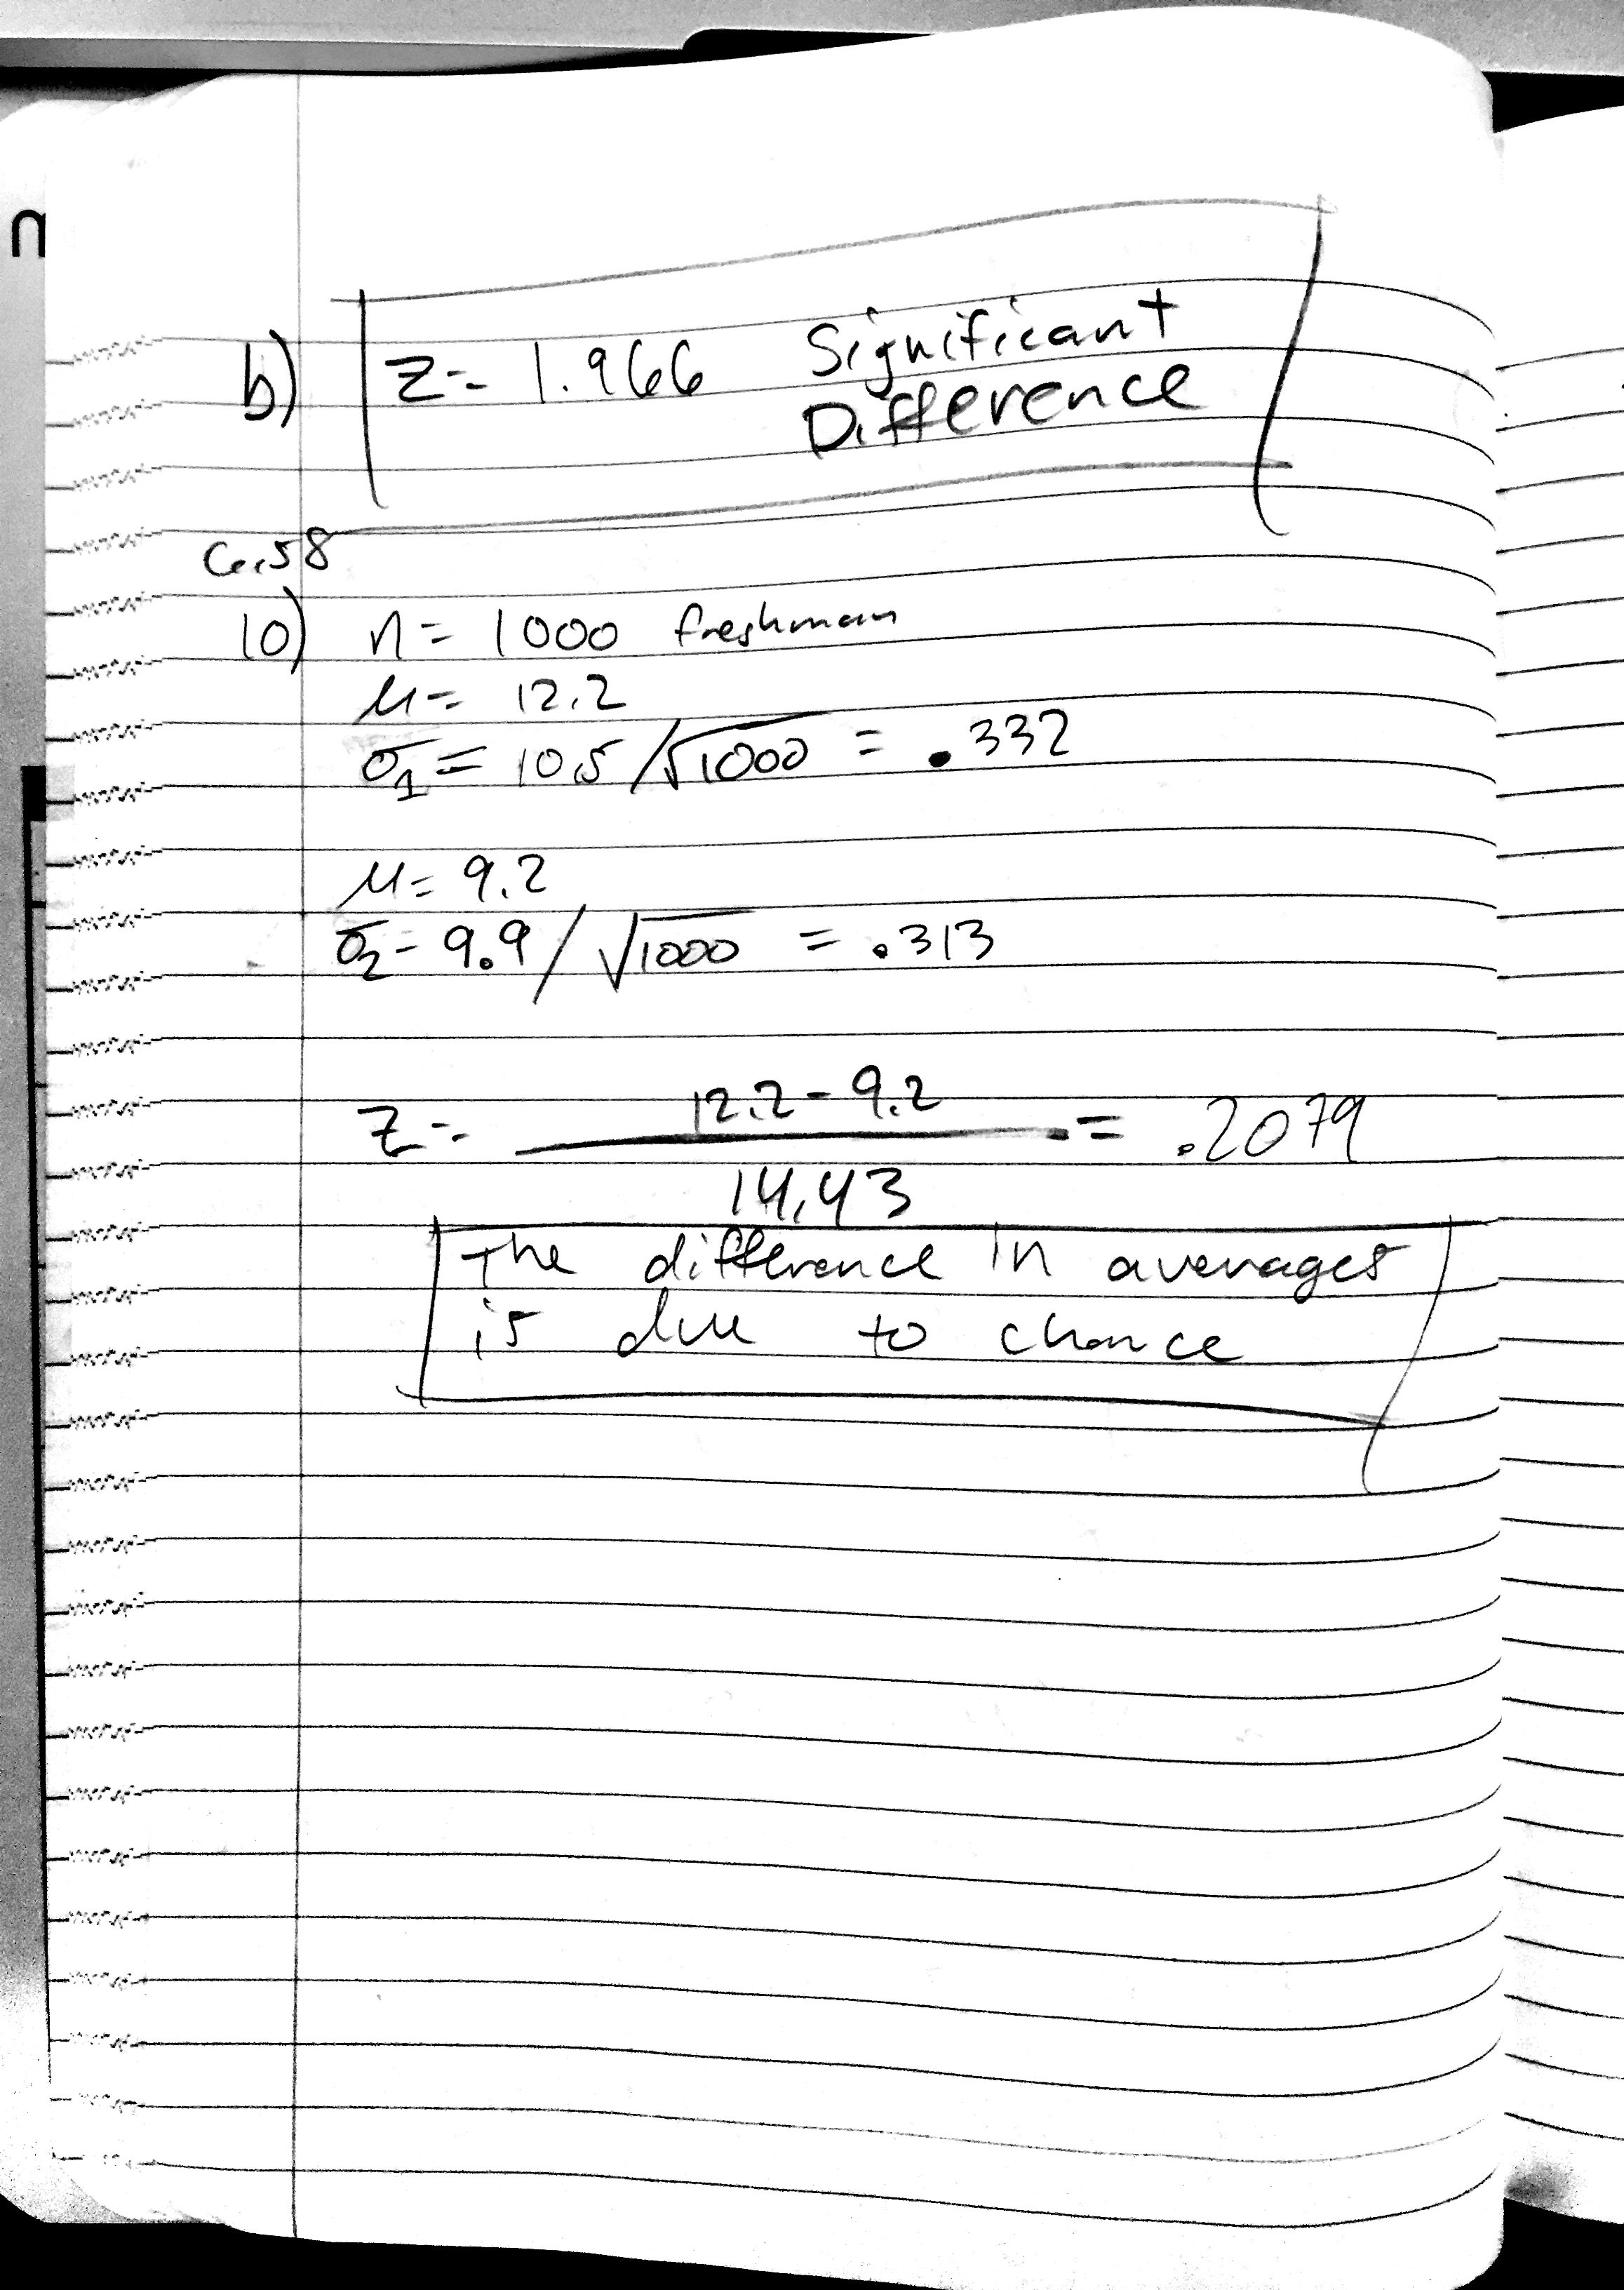 n
b) Z = 1.966 Significant
Difference
10) n = 1000 freshman
μ = 12.2
σ₁ = 10.5 / √1000 = .332
μ = 9.2
σ₂ = 9.9 / √1000 = .313
Z = 12.2 - 9.2 / 14.43 = .2079
The difference in averages
is due to chance